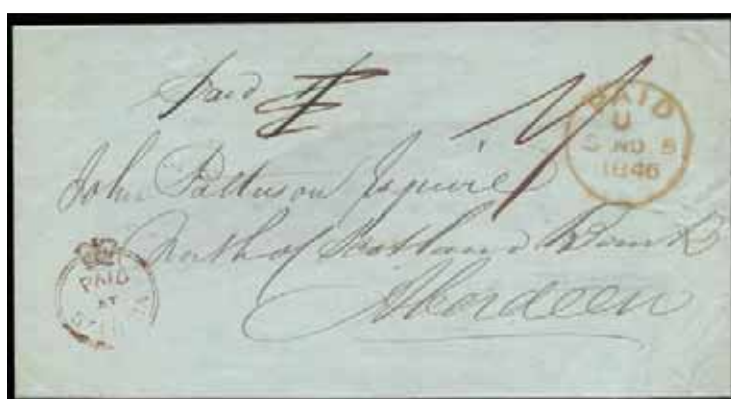 Paid
PAID
U
5 NO 5
1846
John Patterson Esquire
North of Scotland Bank
Aberdeen
PAID
AT